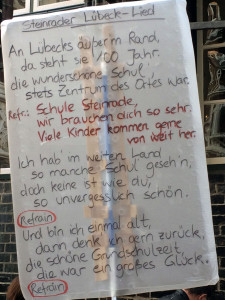 Steinrader Lübeck-Lied
An Lübecks äußer'm Rand,
da steht sie 100 Jahr.
die wunderschöne Schul'
stets Zentrum des Ortes war.
Refr.: Schule Steinrade,
wir brauchen dich so sehr.
Viele Kinder kommen gerne
von weit her.
Ich hab' im weiten Land
so manche Schul' geseh'n,
doch keine ist wie du,
so unvergesslich schön.
Refrain
Und bin ich einmal alt,
dann denk' ich gern zurück,
die schöne Grundschulzeit,
die war ein großes Glück.
Refrain